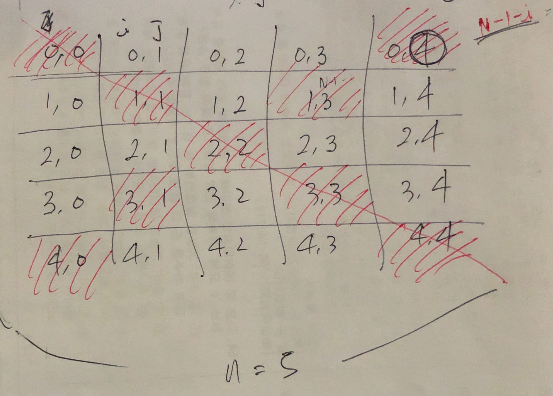 i j N-1-i
0,0 0,1 0,2 0,3 0,4
N-1-
1,0 1,1 1,2 1,3 1,4
2,0 2,1 2,2 2,3 2,4
3,0 3,1 3.2 3,3 3,4
4,0 4,1 4.2 4,3 4,4
n=5